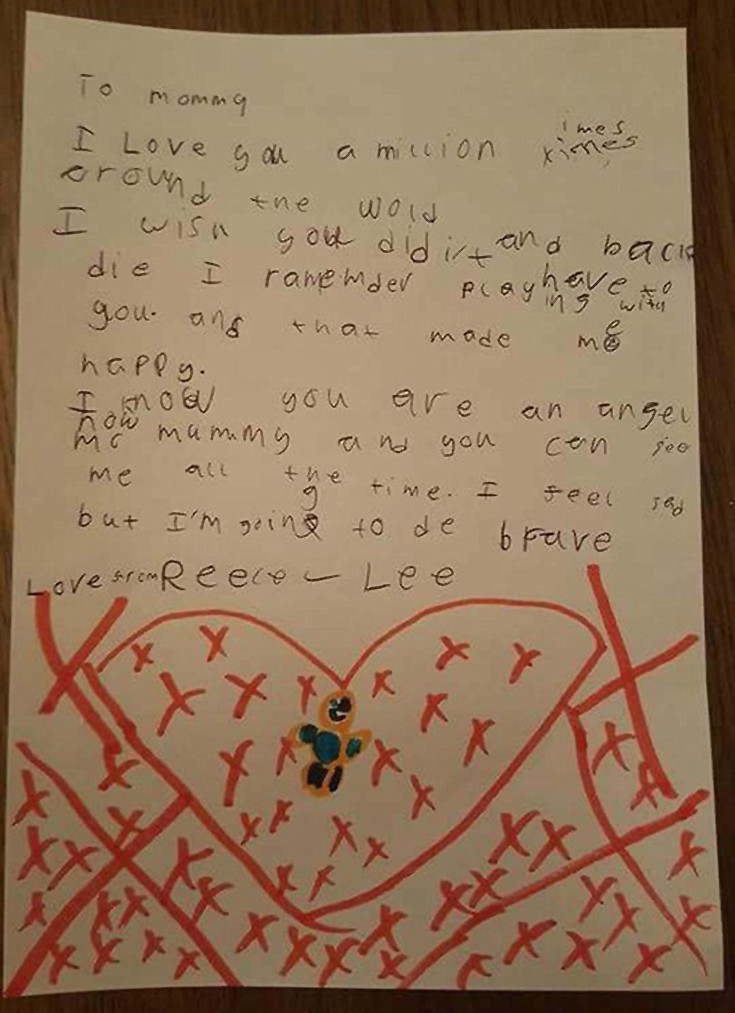 To mommy
I Love you a million ximes imes
around the wold
I wish you did i/t and back
die I ramemder playing have to with
you. and that made me
happy.
I know you are an angel
now mummy and you can see
me all the time. I feel sad
but I'm going to de brave
Love from Reece - Lee